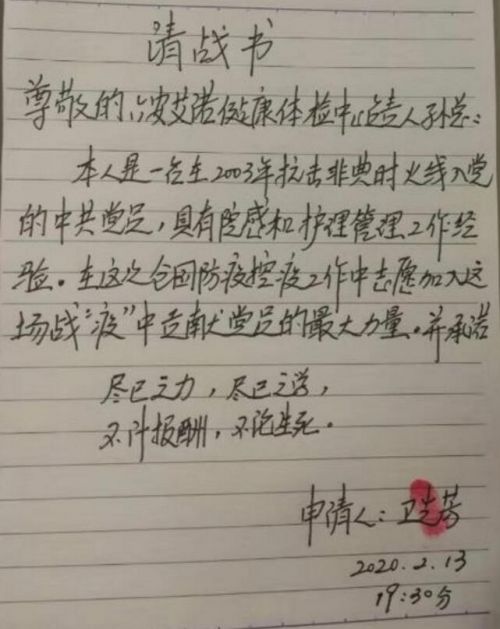 请战书
尊敬的六安艾诺健康体检中心负责人孙总：
本人是一名在2003年抗击非典时火线入党
的中共党员，具有院感和护理管理工作经
验。在这次全国防疫控疫工作中志愿加入这
场战“疫”中贡献党员的最大力量。并承诺
尽己之力，尽己之学，
不计报酬，不论生死。
申请人：卫芳
2020.2.13
19:30分